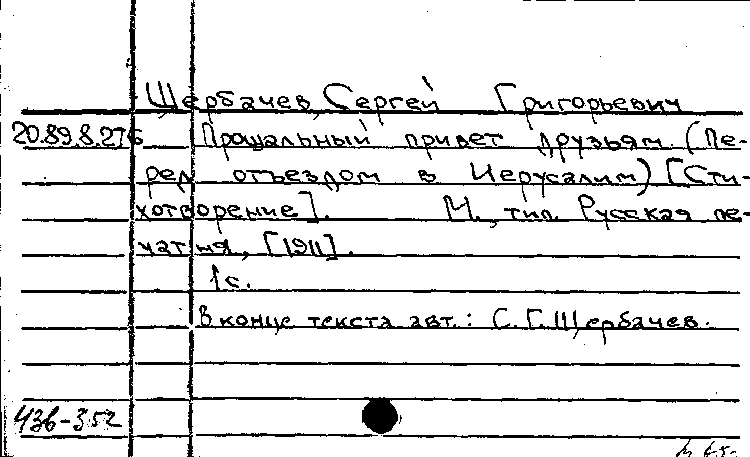 Щербачев, Сергей Григорьевич
20.89.8.276 Прощальный привет друзьям. (Пе-
ред отъездом в Иерусалим) [Сти-
хотворение]. М., тип. Русская пе-
чатня, [1911].
1с.
В конце текста авт.: С.Г.Щербачев.
436-352